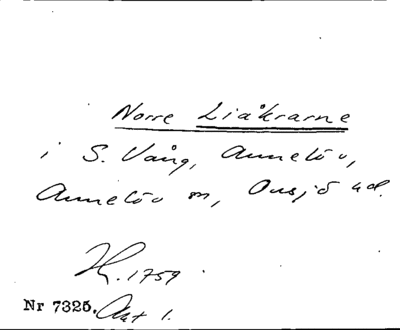 Norre Liåkrarne
i S. Vång, Annelöv,
Annelöv sn, Onsjö hd.
H. 1759.
Nr 7325. Akt 1.